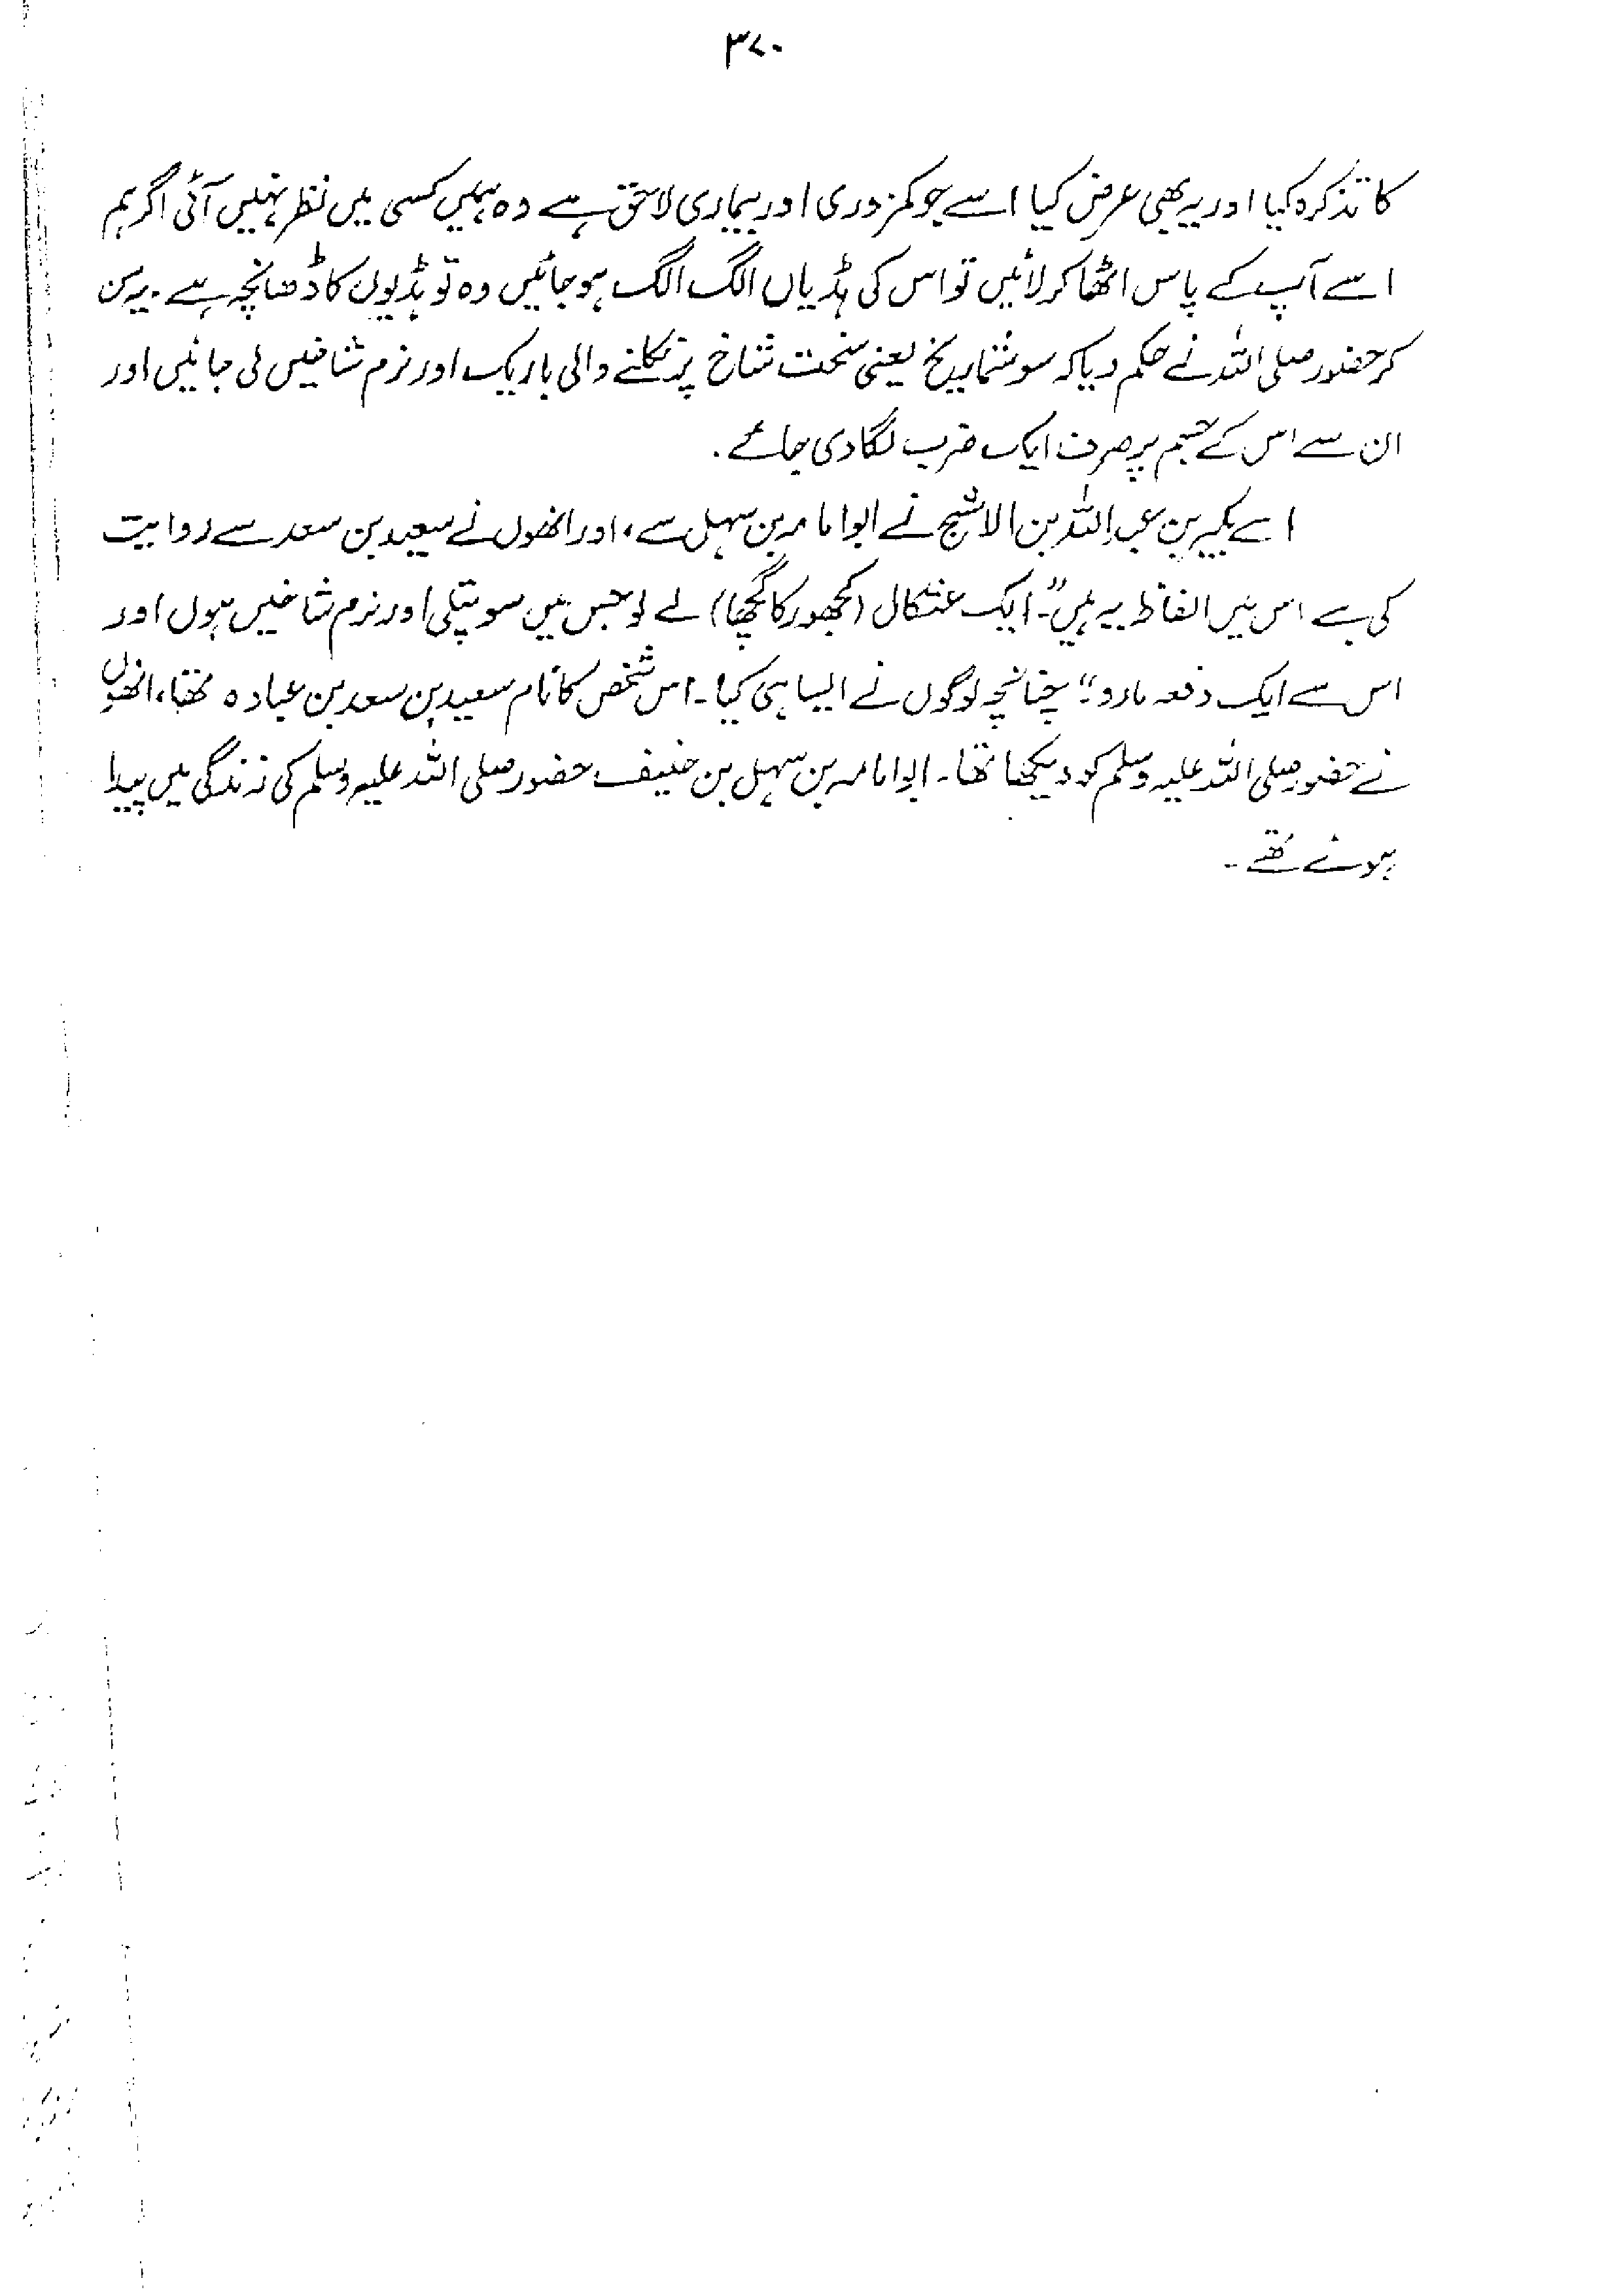 ۳۷۰
کا تذکرہ کیا اور یہ بھی عرض کیا اسے جو کمزوری اور بیماری لاحق ہے وہ ہمیں کسی میں نظر نہیں آئی اگر ہم
اسے آپ کے پاس اٹھا کر لائیں تو اس کی ہڈیاں الگ الگ ہو جائیں وہ تو ہڈیوں کا ڈھانچہ ہے۔ یہ سن
کر حضور صلی اللہ نے حکم دیا کہ سو شماریخ یعنی سخت شاخ پر نکلنے والی باریک اور نرم شاخیں لی جائیں اور
ان سے اس کے جسم پر صرف ایک ضرب لگا دی جائے۔
اسے بکیر بن عبداللہ بن الاشج نے ابوامامہ بن سہل سے، اور انھوں نے سعید بن سعد سے روایت
کی ہے اس میں الفاظ یہ ہیں "۔ ایک عشکال (کھجور کا گچھا) لے لو جس میں سو پتلی اور نرم شاخیں ہوں اور
اس سے ایک دفعہ مارو"؛ چنانچہ لوگوں نے ایسا ہی کیا۔ اس شخص کا نام سعید بن سعد بن عبادہ تھا، انھوں
نے حضور صلی اللہ علیہ وسلم کو دیکھا تھا۔ ابوامامہ بن سہل بن حنیف حضور صلی اللہ علیہ وسلم کی زندگی میں پیدا
ہوئے تھے۔